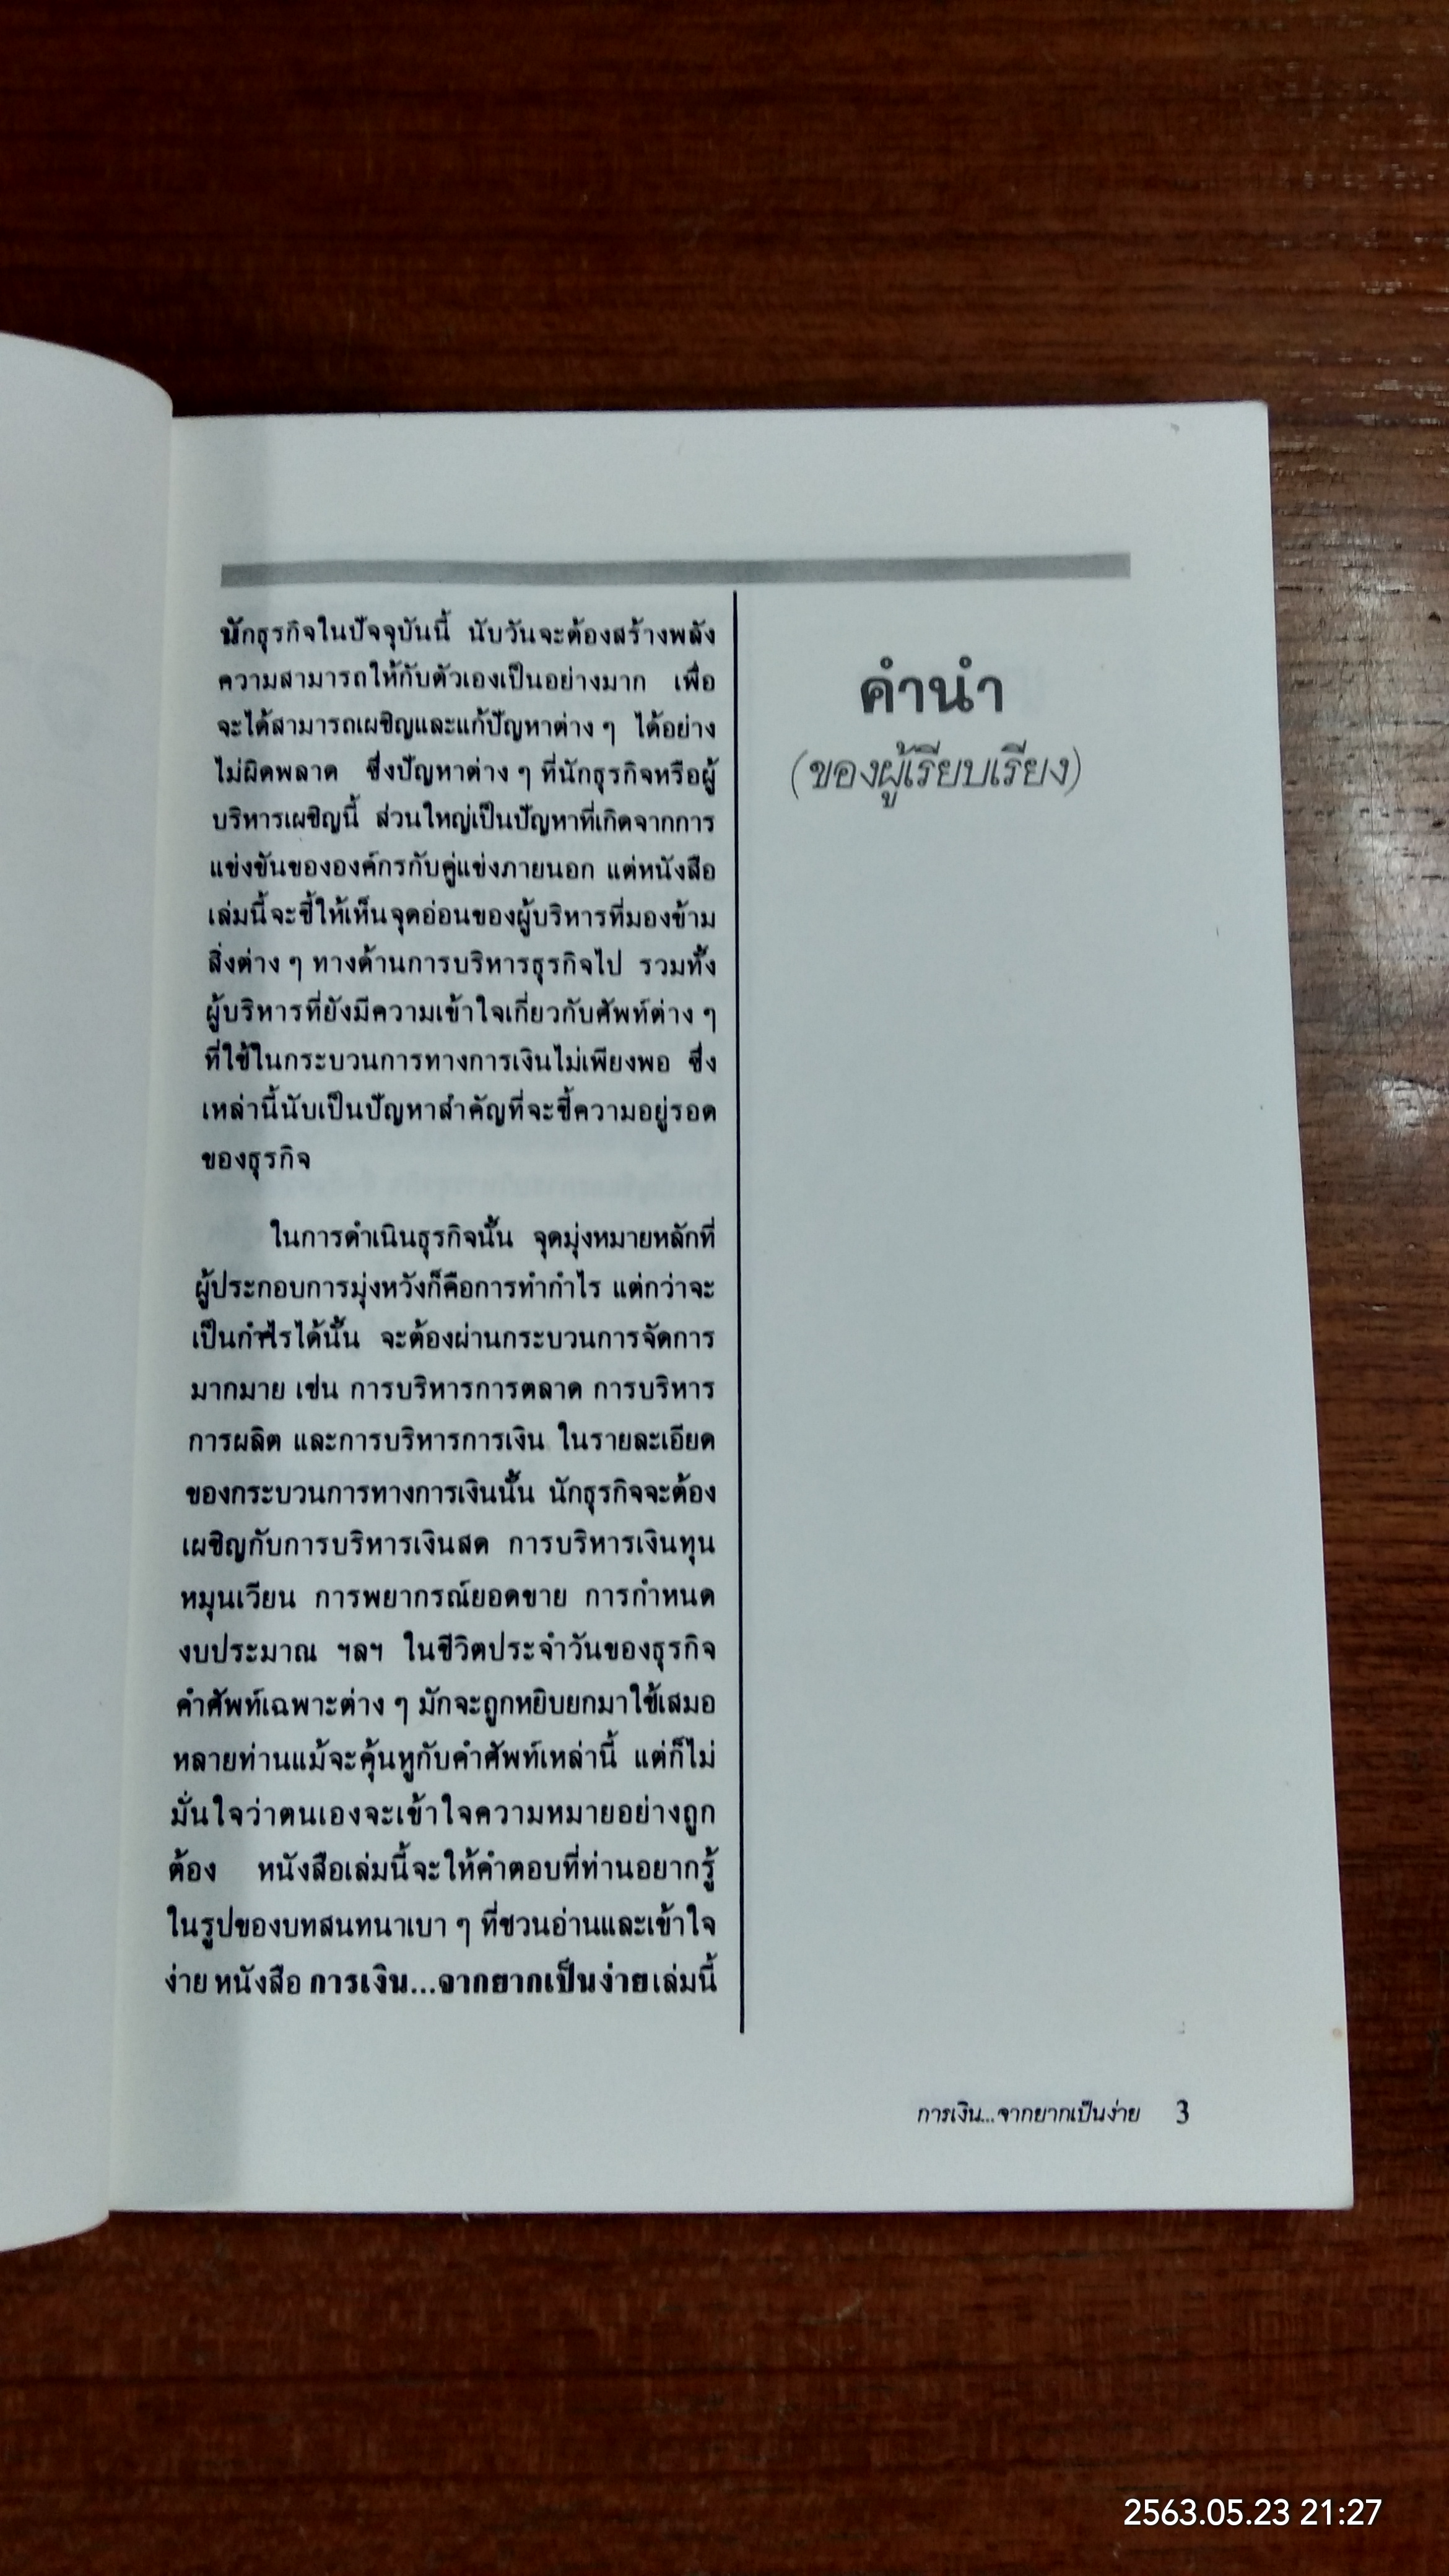 คำนำ
(ของผู้เรียบเรียง)
นักธุรกิจในปัจจุบันนี้ นับวันจะต้องสร้างพลัง
ความสามารถให้กับตัวเองเป็นอย่างมาก เพื่อ
จะได้สามารถเผชิญและแก้ปัญหาต่าง ๆ ได้อย่าง
ไม่ผิดพลาด ซึ่งปัญหาต่าง ๆ ที่นักธุรกิจหรือผู้
บริหารเผชิญนี้ ส่วนใหญ่เป็นปัญหาที่เกิดจากการ
แข่งขันขององค์กรกับคู่แข่งภายนอก แต่หนังสือ
เล่มนี้จะชี้ให้เห็นจุดอ่อนของผู้บริหารที่มองข้าม
สิ่งต่าง ๆ ทางด้านการบริหารธุรกิจไป รวมทั้ง
ผู้บริหารที่ยังมีความเข้าใจเกี่ยวกับศัพท์ต่าง ๆ
ที่ใช้ในกระบวนการทางการเงินไม่เพียงพอ ซึ่ง
เหล่านี้นับเป็นปัญหาสำคัญที่จะชี้ความอยู่รอด
ของธุรกิจ
ในการดำเนินธุรกิจนั้น จุดมุ่งหมายหลักที่
ผู้ประกอบการมุ่งหวังก็คือการทำกำไร แต่กว่าจะ
เป็นกำไรได้นั้น จะต้องผ่านกระบวนการจัดการ
มากมาย เช่น การบริหารการตลาด การบริหาร
การผลิต และการบริหารการเงิน ในรายละเอียด
ของกระบวนการทางการเงินนั้น นักธุรกิจจะต้อง
เผชิญกับการบริหารเงินสด การบริหารเงินทุน
หมุนเวียน การพยากรณ์ยอดขาย การกำหนด
งบประมาณ ฯลฯ ในชีวิตประจำวันของธุรกิจ
คำศัพท์เฉพาะต่าง ๆ มักจะถูกหยิบยกมาใช้เสมอ
หลายท่านแม้จะคุ้นหูกับคำศัพท์เหล่านี้ แต่ก็ไม่
มั่นใจว่าตนเองจะเข้าใจความหมายอย่างถูก
ต้อง หนังสือเล่มนี้จะให้คำตอบที่ท่านอยากรู้
ในรูปของบทสนทนาเบา ๆ ที่ชวนอ่านและเข้าใจ
ง่าย หนังสือ การเงิน...จากยากเป็นง่าย เล่มนี้
การเงิน...จากยากเป็นง่าย 3
2563.05.23 21:27